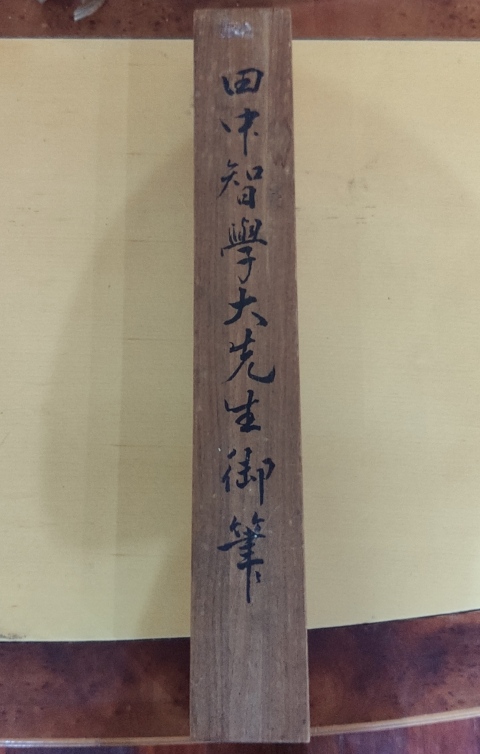 田中智學大先生御筆